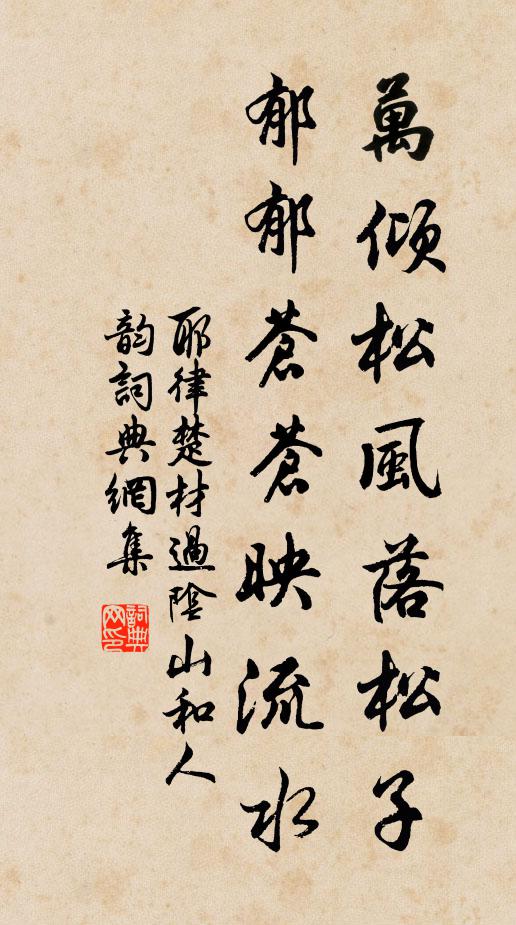 萬傾松風落松子
郁郁蒼蒼映流水
耶律楚材過陰山和人
韵詞典網集
詞典
网印